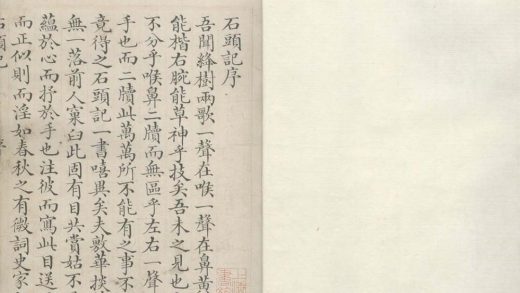 石頭記序
吾聞絳樹兩歌一聲在喉一聲在鼻黃
能楷右腕能草神乎技矣吾未之見也
不分乎喉鼻二牘而無區乎左右一聲
手也而二牘此萬萬所不能有之事不
竟得之石頭記一書嘻異矣夫敷華掞
無一落前人窠臼此固有目共賞姑不
蘊於心而抒於手也注彼而寫此目送
而正似則而淫如春秋之有微詞史家